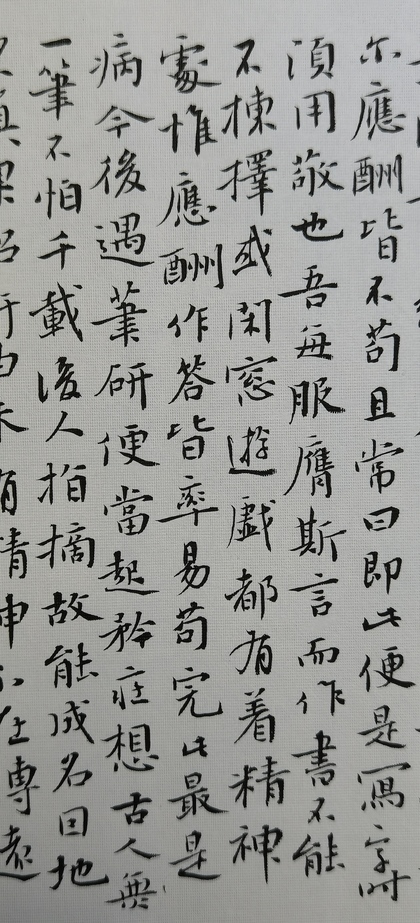 尔應酬皆不苟且常曰即此便是寫字时
湏用敬也吾每服膺斯言而作書不能
不揀擇或閑窓遊戲都有着精神
處惟應酬作答皆率易苟完此最是
病今後遇筆研便當起矜莊想古人無
一筆不怕千載後人指摘故能成名因地
不真果招紆曲未有精神不在專遠